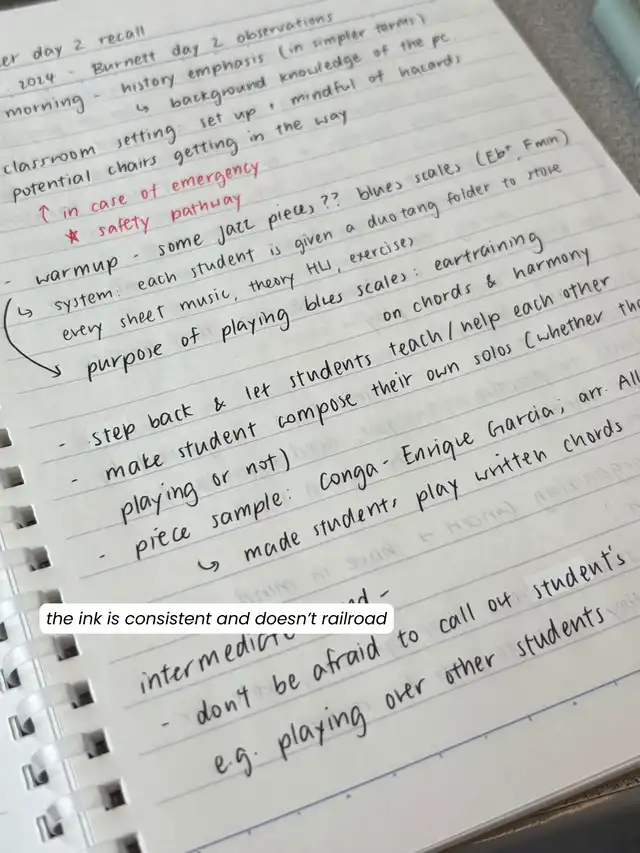 day 2 recall
2024 - Burnett day 2 observations
morning - history emphasis (in simpler terms)
↳ background knowledge of the pc
classroom setting set up + mindful of hazards
potential chairs getting in the way
↑ in case of emergency
* safety pathway
- warmup - some jazz pieces?? blues scales (Eb+, Fmin)
↳ system: each student is given a duotang folder to store
every sheet music, theory HW, exercises
→ purpose of playing blues scales: eartraining
on chords & harmony
- step back & let students teach/help each other
- make student compose their own solos (whether
playing or not)
- piece sample: Conga - Enrique Garcia; arr.
↳ made students play written chords
the ink is consistent and doesn't railroad
intermediate
- don't be afraid to call out student's
e.g. playing over other students